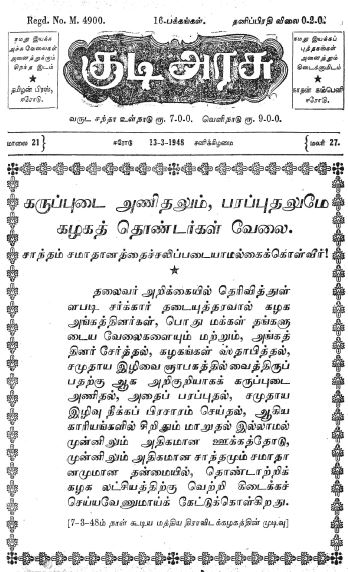 Regd. No. M. 4900. 16-பக்கங்கள். தனிப்பிரதி விலை 0.2.0.
குடி அரசு
சுமது இயக்க
அச்சு வேலைகள்
அனைத்துக்கும்
சிறந்த இடம்
தமிழன் பிரஸ்,
ஈரோடு.
சுமது இயக்கப்
புத்தகங்கள்
அனைத்தும்
கிடைக்குமிடம்
காதல் கம்பெனி
ஈரோடு.
வருட சந்தா உள்நாடு ரூ. 7-0-0. வெளிநாடு ரூ. 9-0-0.
மாலை 21 ஈரோடு 13-3-1948 சனிக்கிழமை மலர் 27.
கருப்புடை அணிதலும், பரப்புதலுமே
கழகத் தொண்டர்கள் வேலை.
சாந்தம் சமாதானத்தைச்சலிப்படையாமல்கைக்கொள்வீர்!
தலைவர் அறிக்கையில் தெரிவித்துள்
ளபடி சர்க்கார் தடையுத்தரவால் கழக
அங்கத்தினர்கள், பொது மக்கள் தங்களு
டைய வேலைகளையும் மற்றும், அங்கத்
தினர் சேர்த்தல், கழகங்கள் ஸ்தாபித்தல்,
சமுதாய இழிவை ஞாபகத்தில்வைத்திருப்
பதற்கு ஆக அறிகுறியாகக் கருப்புடை
அணிதல், அதைப் பரப்புதல், சமுதாய
இழிவு நீக்கப் பிரசாரம் செய்தல், ஆகிய
காரியங்களில் சிறிதும் மாறுதல் இல்லாமல்
முன்னிலும் அதிகமான ஊக்கத்தோடு,
முன்னிலும் அதிகமான சாந்தமும் சமாதா
னமுமான தன்மையில், தொண்டாற்றிக்
கழக லட்சியத்திற்கு வெற்றி கிடைக்கச்
செய்யவேணுமாய்க் கேட்டுக்கொள்கிறது.
[7-3-48ம் நாள் கூடிய மத்திய திராவிடக்கழகத்தின் முடிவு]